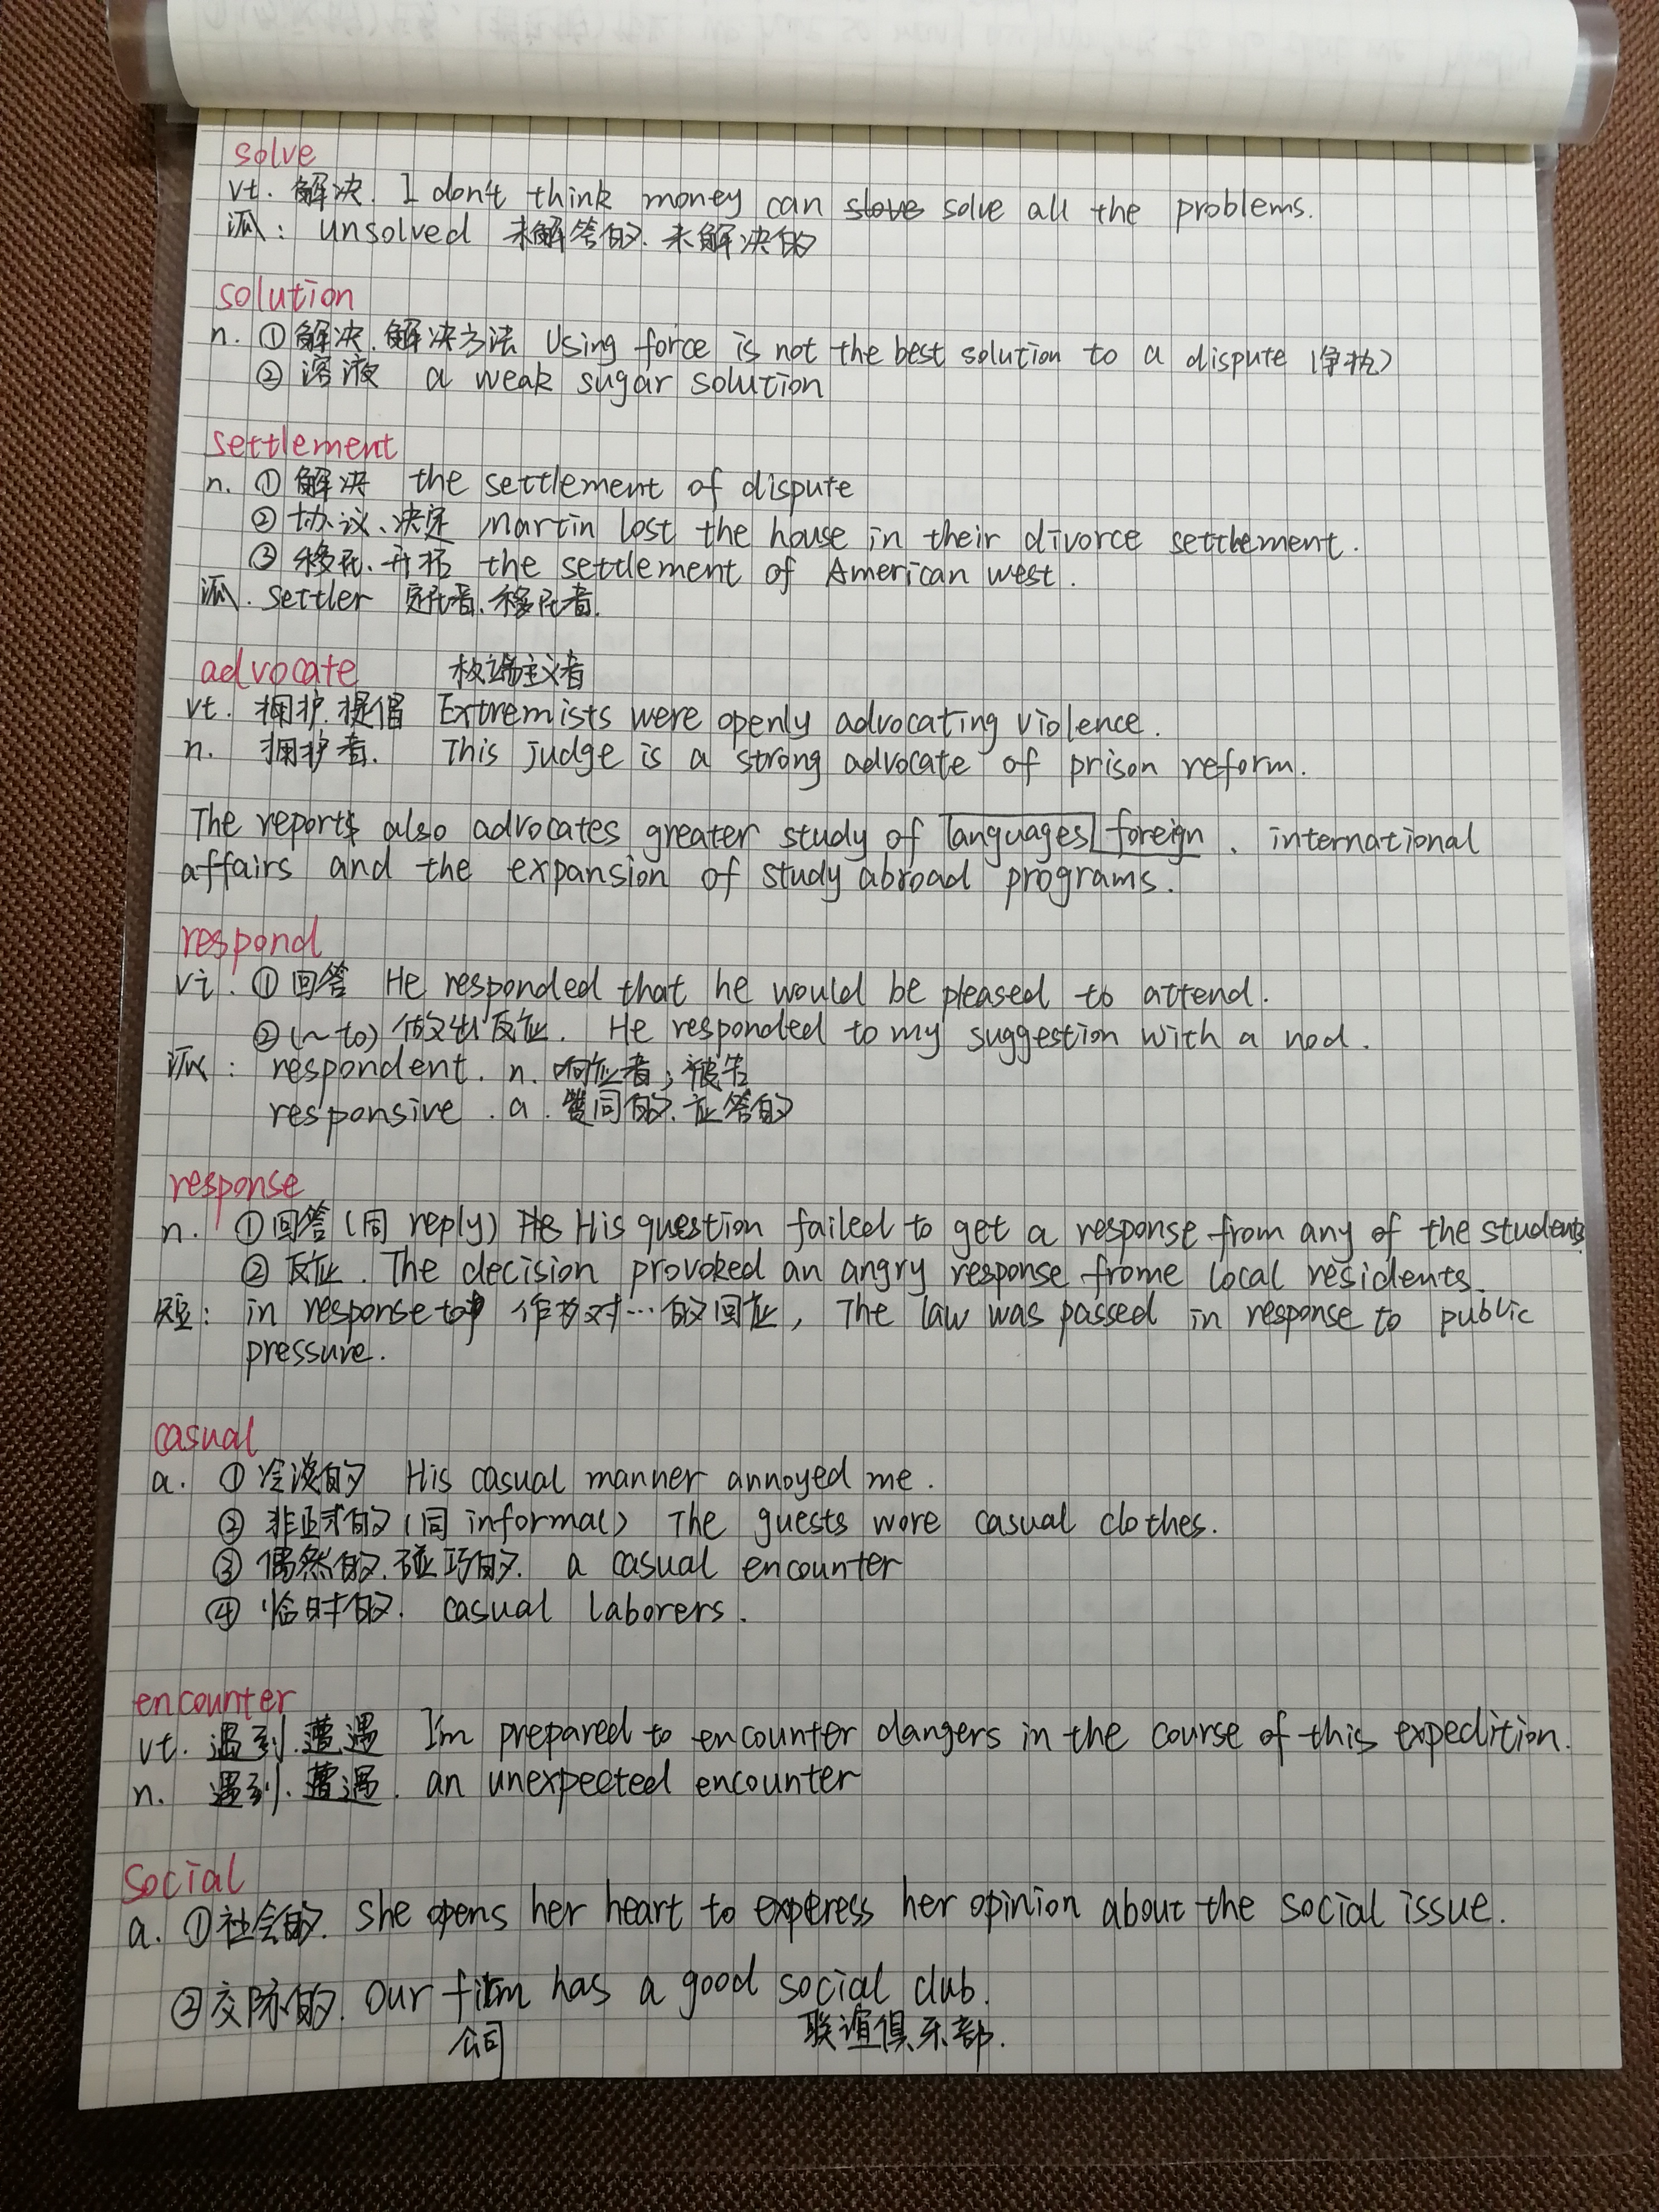 solve
vt. 解决. I don't think money can slove solve all the problems.
派: unsolved 未解答的. 未解决的
solution
n. ①解决. 解决方法 Using force is not the best solution to a dispute (争执)
②溶液 a weak sugar solution
settlement
n. ①解决 the settlement of dispute
②协议、决定 Martin lost the house in their divorce settlement.
③移民. 开拓 the settlement of American west.
派. settler 定居者. 移民者.
advocate 极端主义者
vt. 拥护. 提倡 Extremists were openly advocating violence.
n. 拥护者. This judge is a strong advocate of prison reform.
The reports also advocates greater study of languages foreign . international
affairs and the expansion of study abroad programs.
respond
vi. ①回答 He responded that he would be pleased to attend.
②(~ to) 做出反应. He responded to my suggestion with a nod.
派: respondent. n. 响应者; 被告
responsive. a. 赞同的. 应答的
response
n. ①回答 (同 reply) He His question failed to get a response from any of the students
②反应. The decision provoked an angry response frome local residents.
短: in response to 作为对…的回应, The law was passed in response to public
pressure.
casual
a. ①冷淡的 His casual manner annoyed me.
②非正式的 (同 informal) The guests wore casual clothes.
③偶然的. 碰巧的. a casual encounter
④临时的. casual laborers.
encounter
vt. 遇到. 遭遇 I'm prepared to encounter dangers in the course of this expedition.
n. 遇到. 遭遇. an unexpected encounter
social
a. ①社会的. She opens her heart to express her opinion about the social issue.
②交际的. Our firm has a good social club.
公司 联谊俱乐部.